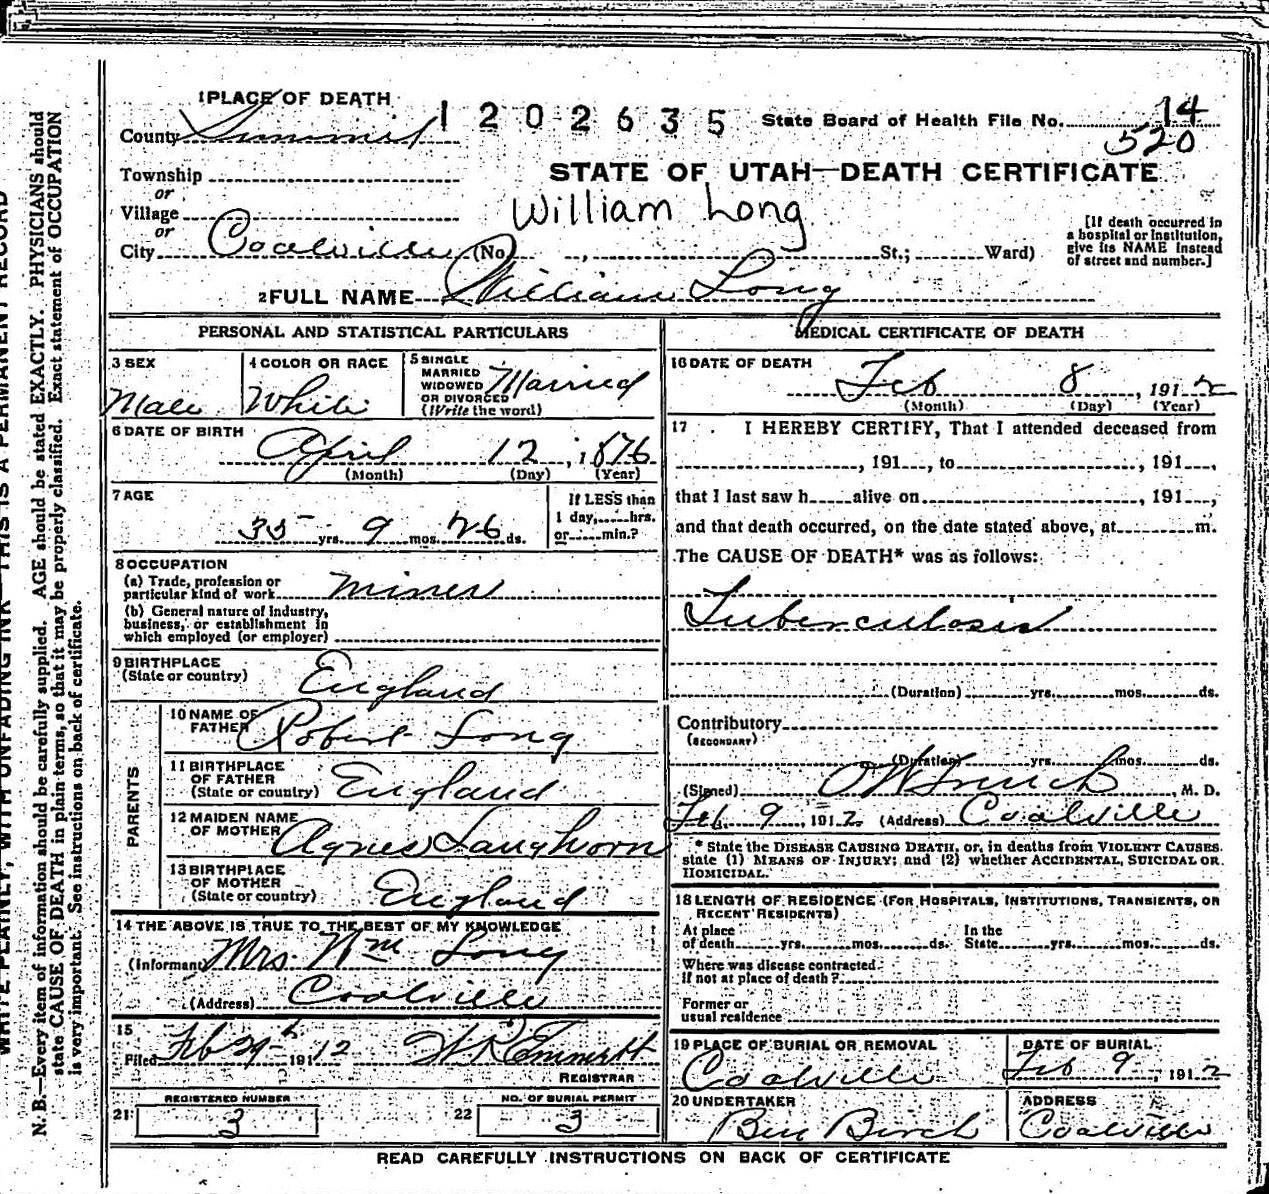 1 PLACE OF DEATH
1202635
State Board of Health File No. 14
520
County Summit
STATE OF UTAH—DEATH CERTIFICATE
Township
or
William Long
Village
or
City Coalville (No. , St.; Ward)
[If death occurred in
a hospital or institution,
give its NAME instead
of street and number.]
2 FULL NAME William Long
PERSONAL AND STATISTICAL PARTICULARS
3 SEX
Male
4 COLOR OR RACE
White
5 SINGLE
MARRIED
WIDOWED
OR DIVORCED
(Write the word)
Married
6 DATE OF BIRTH
April 12, 1876
(Month) (Day) (Year)
7 AGE
35 yrs. 9 mos. 26 ds.
If LESS than
1 day, hrs.
or min.?
8 OCCUPATION
(a) Trade, profession or
particular kind of work Miner
(b) General nature of Industry,
business, or establishment in
which employed (or employer)
9 BIRTHPLACE
(State or country) England
PARENTS
10 NAME OF
FATHER Robert Long
11 BIRTHPLACE
OF FATHER
(State or country) England
12 MAIDEN NAME
OF MOTHER Agnes Langhorn
13 BIRTHPLACE
OF MOTHER
(State or country) England
14 THE ABOVE IS TRUE TO THE BEST OF MY KNOWLEDGE
(Informant) Mrs. Wm Long
(Address) Coalville
15
Filed Feb 29 1912
REGISTRAR
REGISTERED NUMBER
21 3
NO. OF BURIAL PERMIT
22 3
MEDICAL CERTIFICATE OF DEATH
16 DATE OF DEATH
Feb 8, 1912
(Month) (Day) (Year)
17 . I HEREBY CERTIFY, That I attended deceased from
, 191 , to , 191 ,
that I last saw h alive on , 191 ,
and that death occurred, on the date stated above, at m.
The CAUSE OF DEATH* was as follows:
Tuberculosis
(Duration) yrs. mos. ds.
Contributory
(SECONDARY)
(Duration) yrs. mos. ds.
(Signed) , M. D.
Feb. 9, 1912 (Address) Coalville
* State the DISEASE CAUSING DEATH, or, in deaths from VIOLENT CAUSES,
state (1) MEANS OF INJURY; and (2) whether ACCIDENTAL, SUICIDAL OR
HOMICIDAL.
18 LENGTH OF RESIDENCE (FOR HOSPITALS, INSTITUTIONS, TRANSIENTS, OR
RECENT RESIDENTS)
At place
of death yrs. mos. ds.
In the
State yrs. mos. ds.
Where was disease contracted
if not at place of death?
Former or
usual residence
19 PLACE OF BURIAL OR REMOVAL
Coalville
DATE OF BURIAL
Feb 9, 1912
20 UNDERTAKER
Ben Birch
ADDRESS
Coalville
READ CAREFULLY INSTRUCTIONS ON BACK OF CERTIFICATE
WRITE PLAINLY, WITH UNFADING INK—THIS IS A PERMANENT RECORD
N. B.—Every item of information should be carefully supplied. AGE should be stated EXACTLY. PHYSICIANS should
state CAUSE OF DEATH in plain terms, so that it may be properly classified. Exact statement of OCCUPATION
is very important. See instructions on back of certificate.